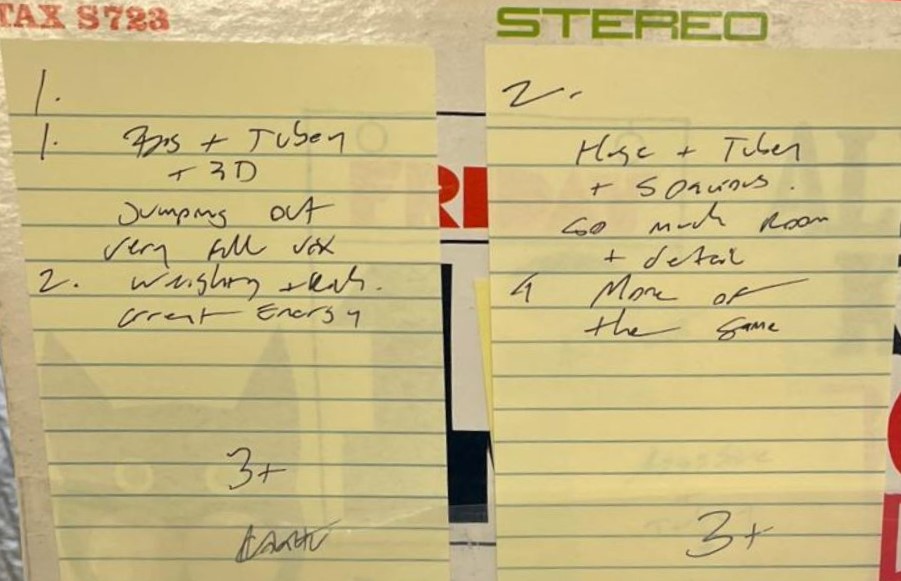 TAX S723
STEREO
1.
1. + Tubey
+ 3D
Jumping out
very full vox
2. Weighty +
Great Energy
3+
2.
Huge + Tubey
+ Spacious.
so much Room
+ detail
4 More of
the same
3+